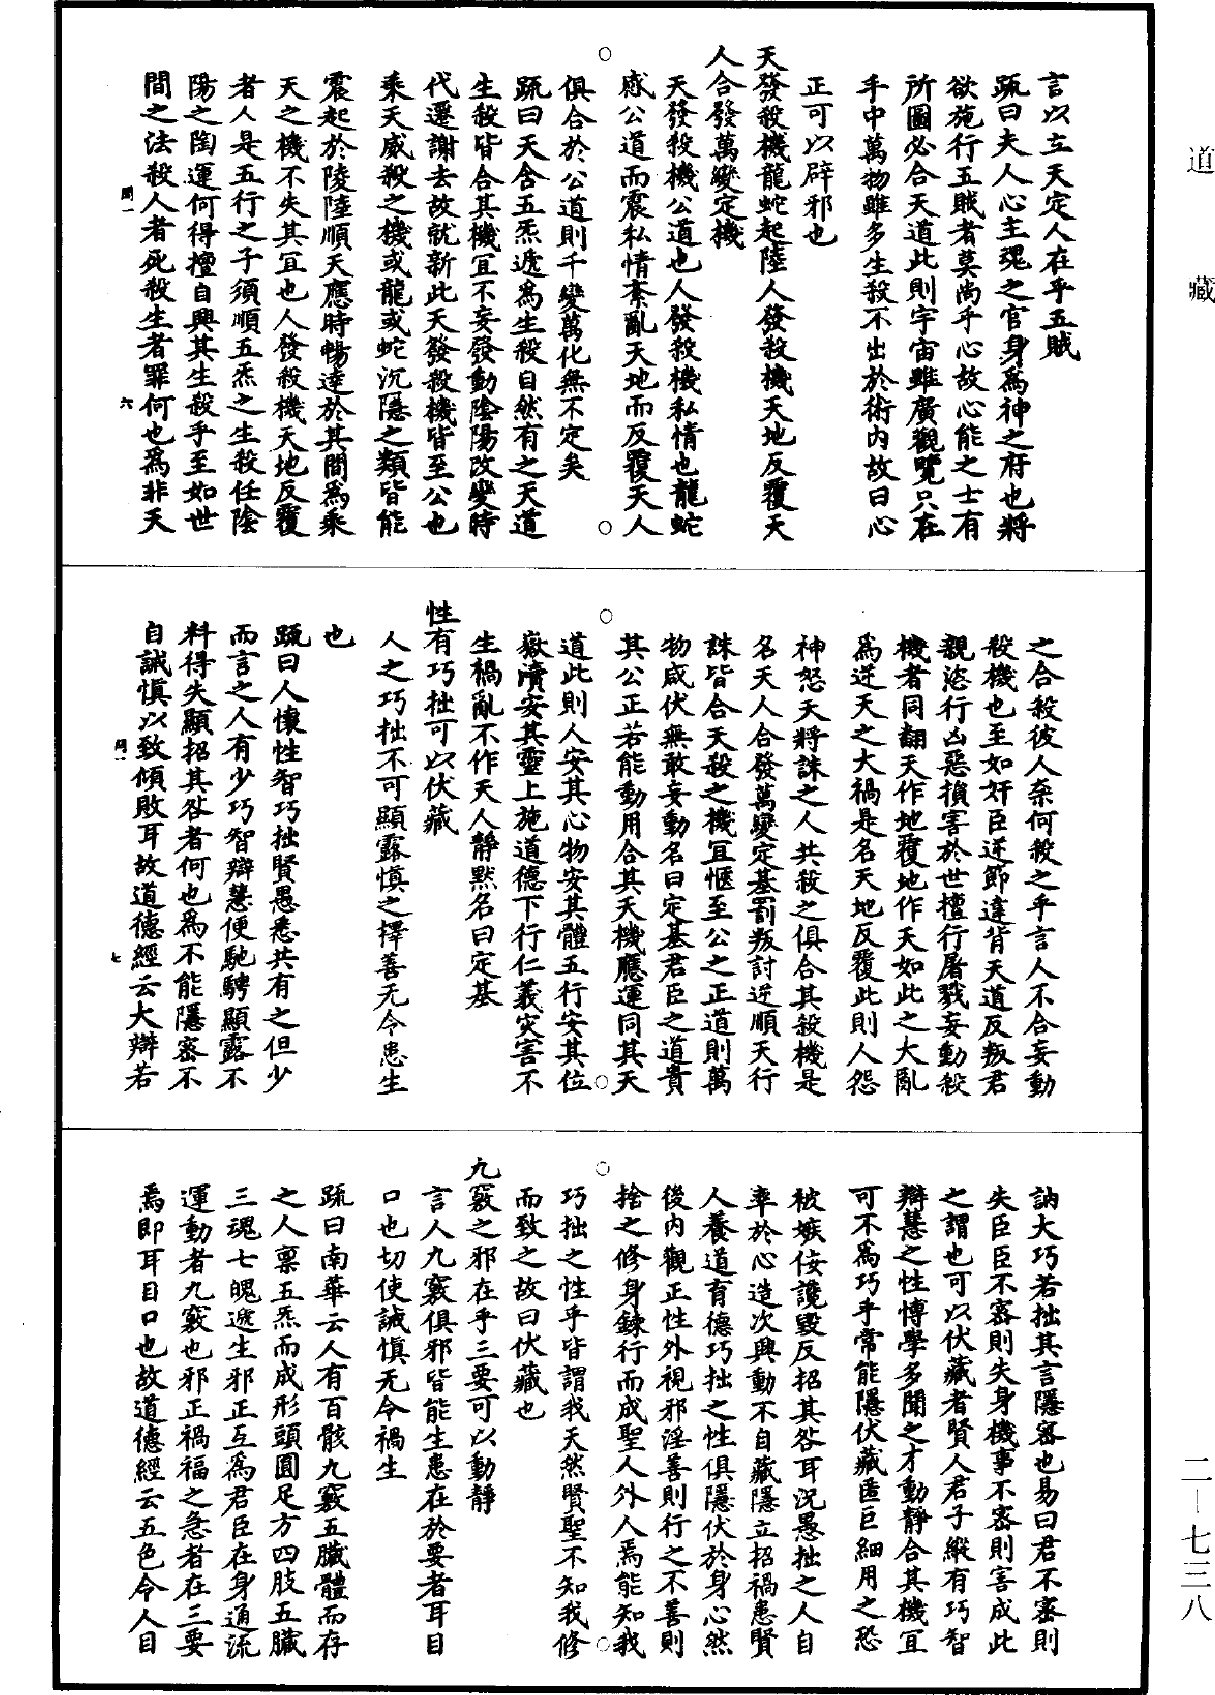 道藏
言以立天定人在乎五賊
疏曰夫人心主魂之官身為神之府也將
欲施行五賊者莫尚乎心故心能之士有
所圖必合天道此則宇宙雖廣觀覽只在
手中萬物雖多生殺不出於術內故曰心
正可以辟邪也
天發殺機龍蛇起陸人發殺機天地反覆天
人合發萬變定機
天發殺機公道也人發殺機私情也龍蛇
感公道而震私情紊亂天地而反覆天人
俱合於公道則千變萬化無不定矣
疏曰天含五炁遞為生殺自然有之天道
生殺皆合其機宜不妄發動陰陽改變時
代遷謝去故就新此天發殺機皆至公也
乘天威殺之機或龍或蛇沉隱之類皆能
震起於陵陸順天應時暢達於其間為乘
天之機不失其宜也人發殺機天地反覆
者人是五行之子須順五炁之生殺任陰
陽之陶運何得擅自興其生殺乎至如世
間之法殺人者死殺生者罪何也為非天
閏一 六
之合殺彼人奈何殺之乎言人不合妄動
殺機也至如奸臣逆節違背天道反叛君
親恣行凶惡損害於世擅行屠戮妄動殺
機者同翻天作地覆地作天如此之大亂
為逆天之大禍是名天地反覆此則人怨
神怒天將誅之人共殺之俱合其殺機是
名天人合發萬變定基罰叛討逆順天行
誅皆合天殺之機宜愜至公之正道則萬
物咸伏無敢妄動名曰定基君臣之道貴
其公正若能動用合其天機應運同其天
道此則人安其心物安其體五行安其位
嶽瀆安其靈上施道德下行仁義灾害不
生禍亂不作天人靜默名曰定基
性有巧拙可以伏藏
人之巧拙不可顯露慎之擇善无令患生
也
疏曰人懷性智巧拙賢愚悉共有之但少
而言之人有少巧智辯慧便馳騁顯露不
料得失顯招其咎者何也為不能隱密不
自誡慎以致傾敗耳故道德經云大辯若
閏一 七
訥大巧若拙其言隱密也易曰君不密則
失臣臣不密則失身機事不密則害成此
之謂也可以伏藏者賢人君子縱有巧智
辯慧之性博學多聞之才動靜合其機宜
可不為巧乎常能隱伏藏匿巨細用之恐
被嫉佞讒毀反招其咎耳況愚拙之人自
率於心造次興動不自藏隱立招禍患賢
人養道育德巧拙之性俱隱伏於身心然
後內觀正性外視邪淫善則行之不善則
捨之修身鍊行而成聖人外人焉能知我
巧拙之性乎皆謂我天然賢聖不知我修
而致之故曰伏藏也
九竅之邪在乎三要可以動靜
言人九竅俱邪皆能生患在於要者耳目
口也切使誡慎无令禍生
疏曰南華云人有百骸九竅五臟體而存
之人稟五炁而成形頭圓足方四肢五臟
三魂七魄遞生邪正互為君臣在身通流
運動者九竅也邪正禍福之急者在三要
焉即耳目口也故道德經云五色令人目
二—七三八